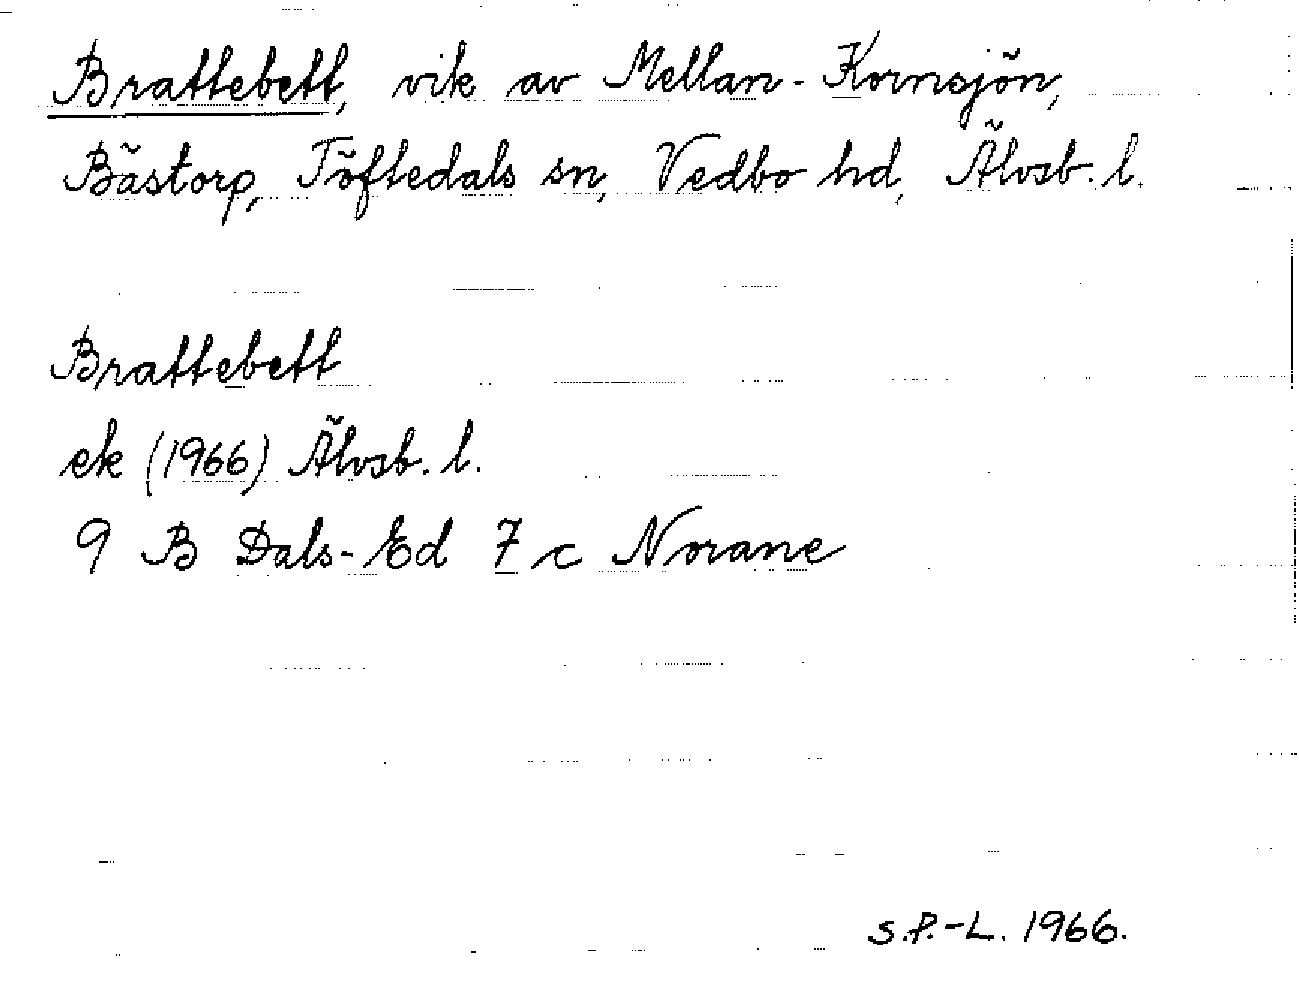 Brattebett, vik av Mellan-Kornsjön,
Bästorp, Töftedals sn, Vedbo hd, Älvsb. l.
Brattebett
ek (1966) Älvsb. l.
9 B Dals-Ed 7 c Norane
S.P.-L. 1966.